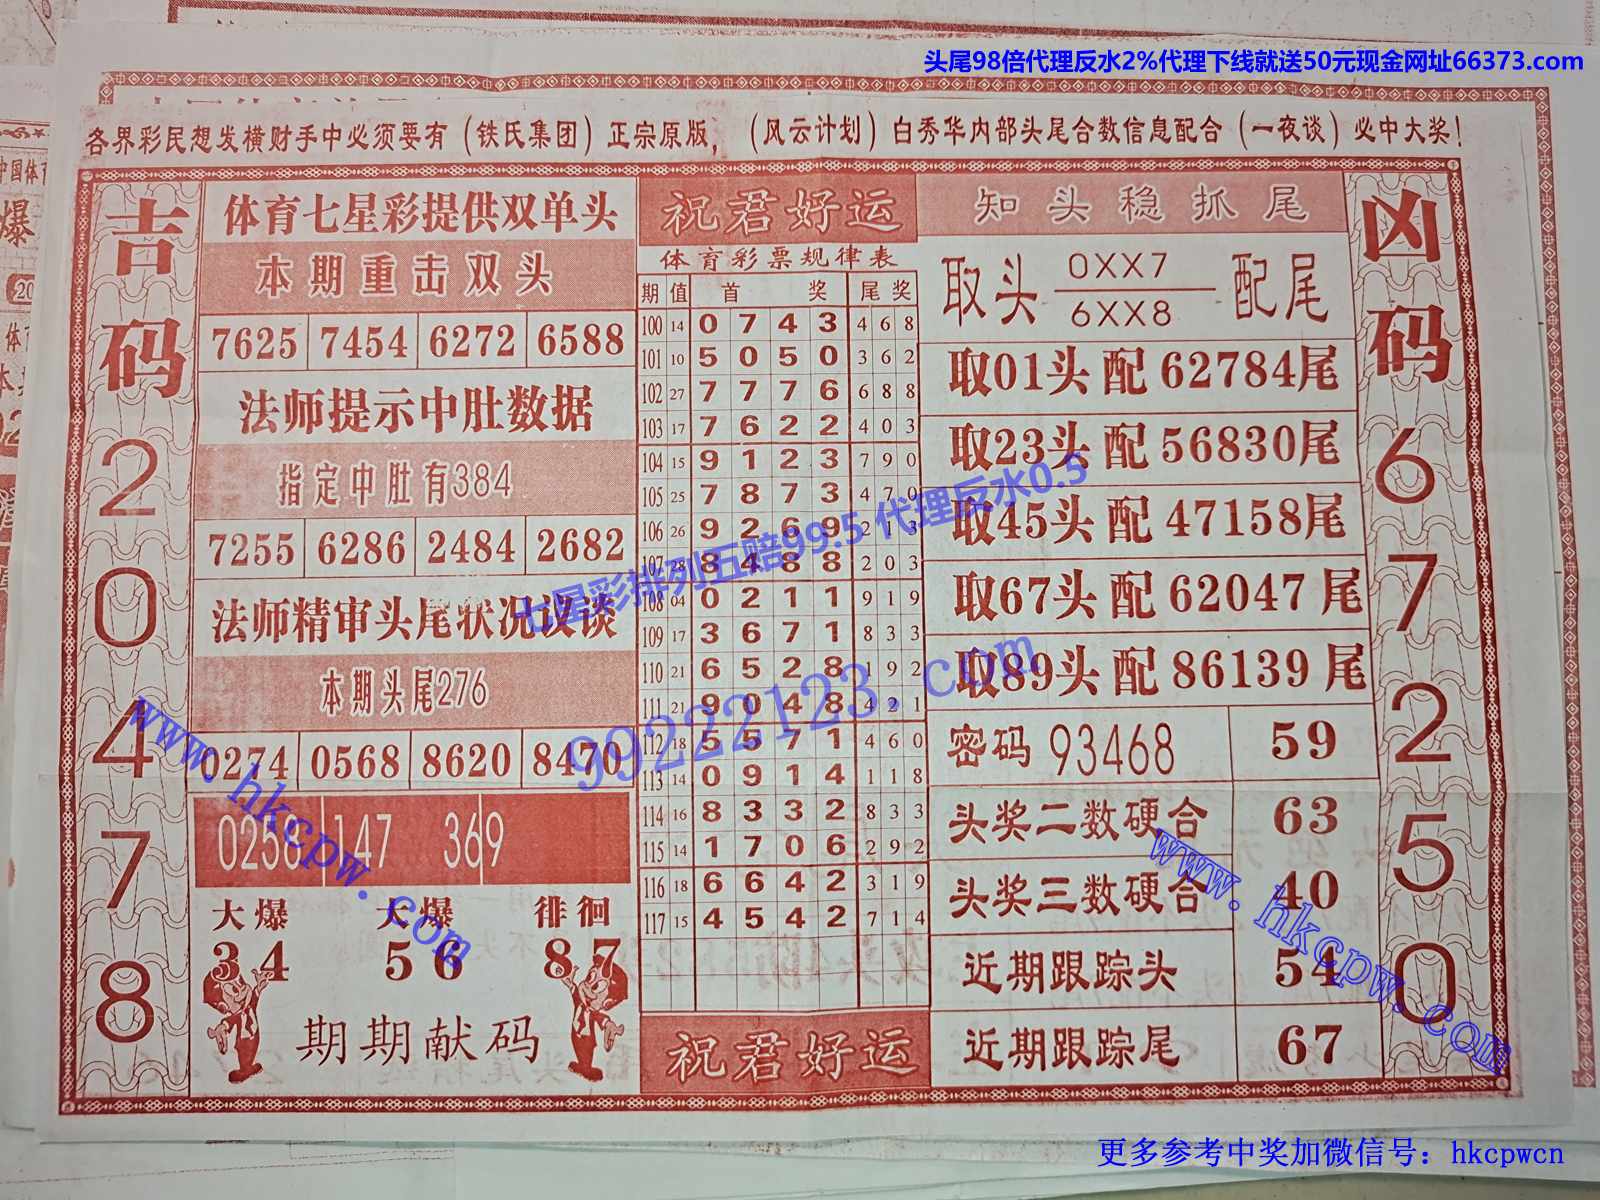 头尾98倍代理反水2%代理下线就送50元现金网址66373.com
各界彩民想发横财手中必须要有（铁氏集团）正宗原版，（风云计划）白秀华内部头尾合数信息配合（一夜谈）必中大奖！
吉码
2
0
4
7
8
体育七星彩提供双单头
本期重击双头
7625 7454 6272 6588
法师提示中肚数据
指定中肚有384
7255 6286 2484 2682
法师精审头尾状况议谈
本期头尾276
0274 0568 8620 8470
0258 147 369
大爆 大爆 徘徊
34 56 87
期期献码
祝君好运
体育彩票规律表
期 值 首 奖 尾 奖
100 14 0 7 4 3 4 6 8
101 10 5 0 5 0 3 6 2
102 27 7 7 7 6 6 8 8
103 17 7 6 2 2 4 0 3
104 15 9 1 2 3 7 9 0
105 25 7 8 7 3 4 7 0
106 26 9 2 6 9 2 1 3
107 28 8 4 8 8 2 0 3
108 04 0 2 1 1 9 1 9
109 17 3 6 7 1 8 3 3
110 21 6 5 2 8 1 9 2
111 21 9 0 4 8 4 2 1
112 18 5 5 7 1 4 6 0
113 14 0 9 1 4 1 1 8
114 16 8 3 3 2 8 3 3
115 14 1 7 0 6 2 9 2
116 18 6 6 4 2 3 1 9
117 15 4 5 4 2 7 1 4
祝君好运
知头稳抓尾
取头 0XX7 配尾
6XX8
取01头 配 62784尾
取23头 配 56830尾
取45头 配 47158尾
取67头 配 62047尾
取89头 配 86139尾
密码 93468 59
头奖二数硬合 63
头奖三数硬合 40
近期跟踪头 54
近期跟踪尾 67
凶码
6
7
2
5
0
七星彩排列五赔99.5 代理反水0.5
99222123.com
www.hkcpw.com
www.hkcpw.com
更多参考中奖加微信号：hkcpwcn